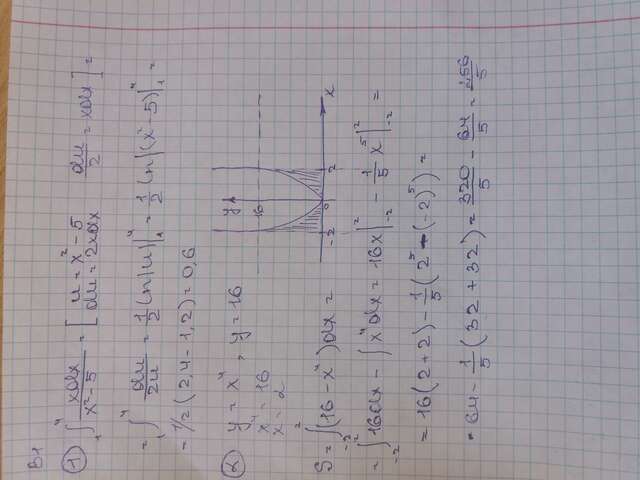 В1
① ₁∫⁴ xdx / x²-5 = [ u = x² - 5   du/2 = xdx ] =
du = 2xdx
= ₁∫⁴ du/2u = 1/2 ln|u| |₁⁴ = 1/2 ln|(x²-5)| |₁⁴ =
= 1/2 (2,4 - 1,2) = 0,6
② y = x⁴, y = 16
x⁴ = 16
x = 2
y
16
x
-2 0 2
S = ₋₂∫² (16 - x⁴)dx =
= ₋₂∫² 16dx - ∫ x⁴dx = 16x |₋₂² - 1/5 x⁵ |₋₂² =
= 16(2+2) - 1/5 (2⁵ - (-2)⁵) =
= 64 - 1/5 (32 + 32) = 320/5 - 64/5 = 256/5